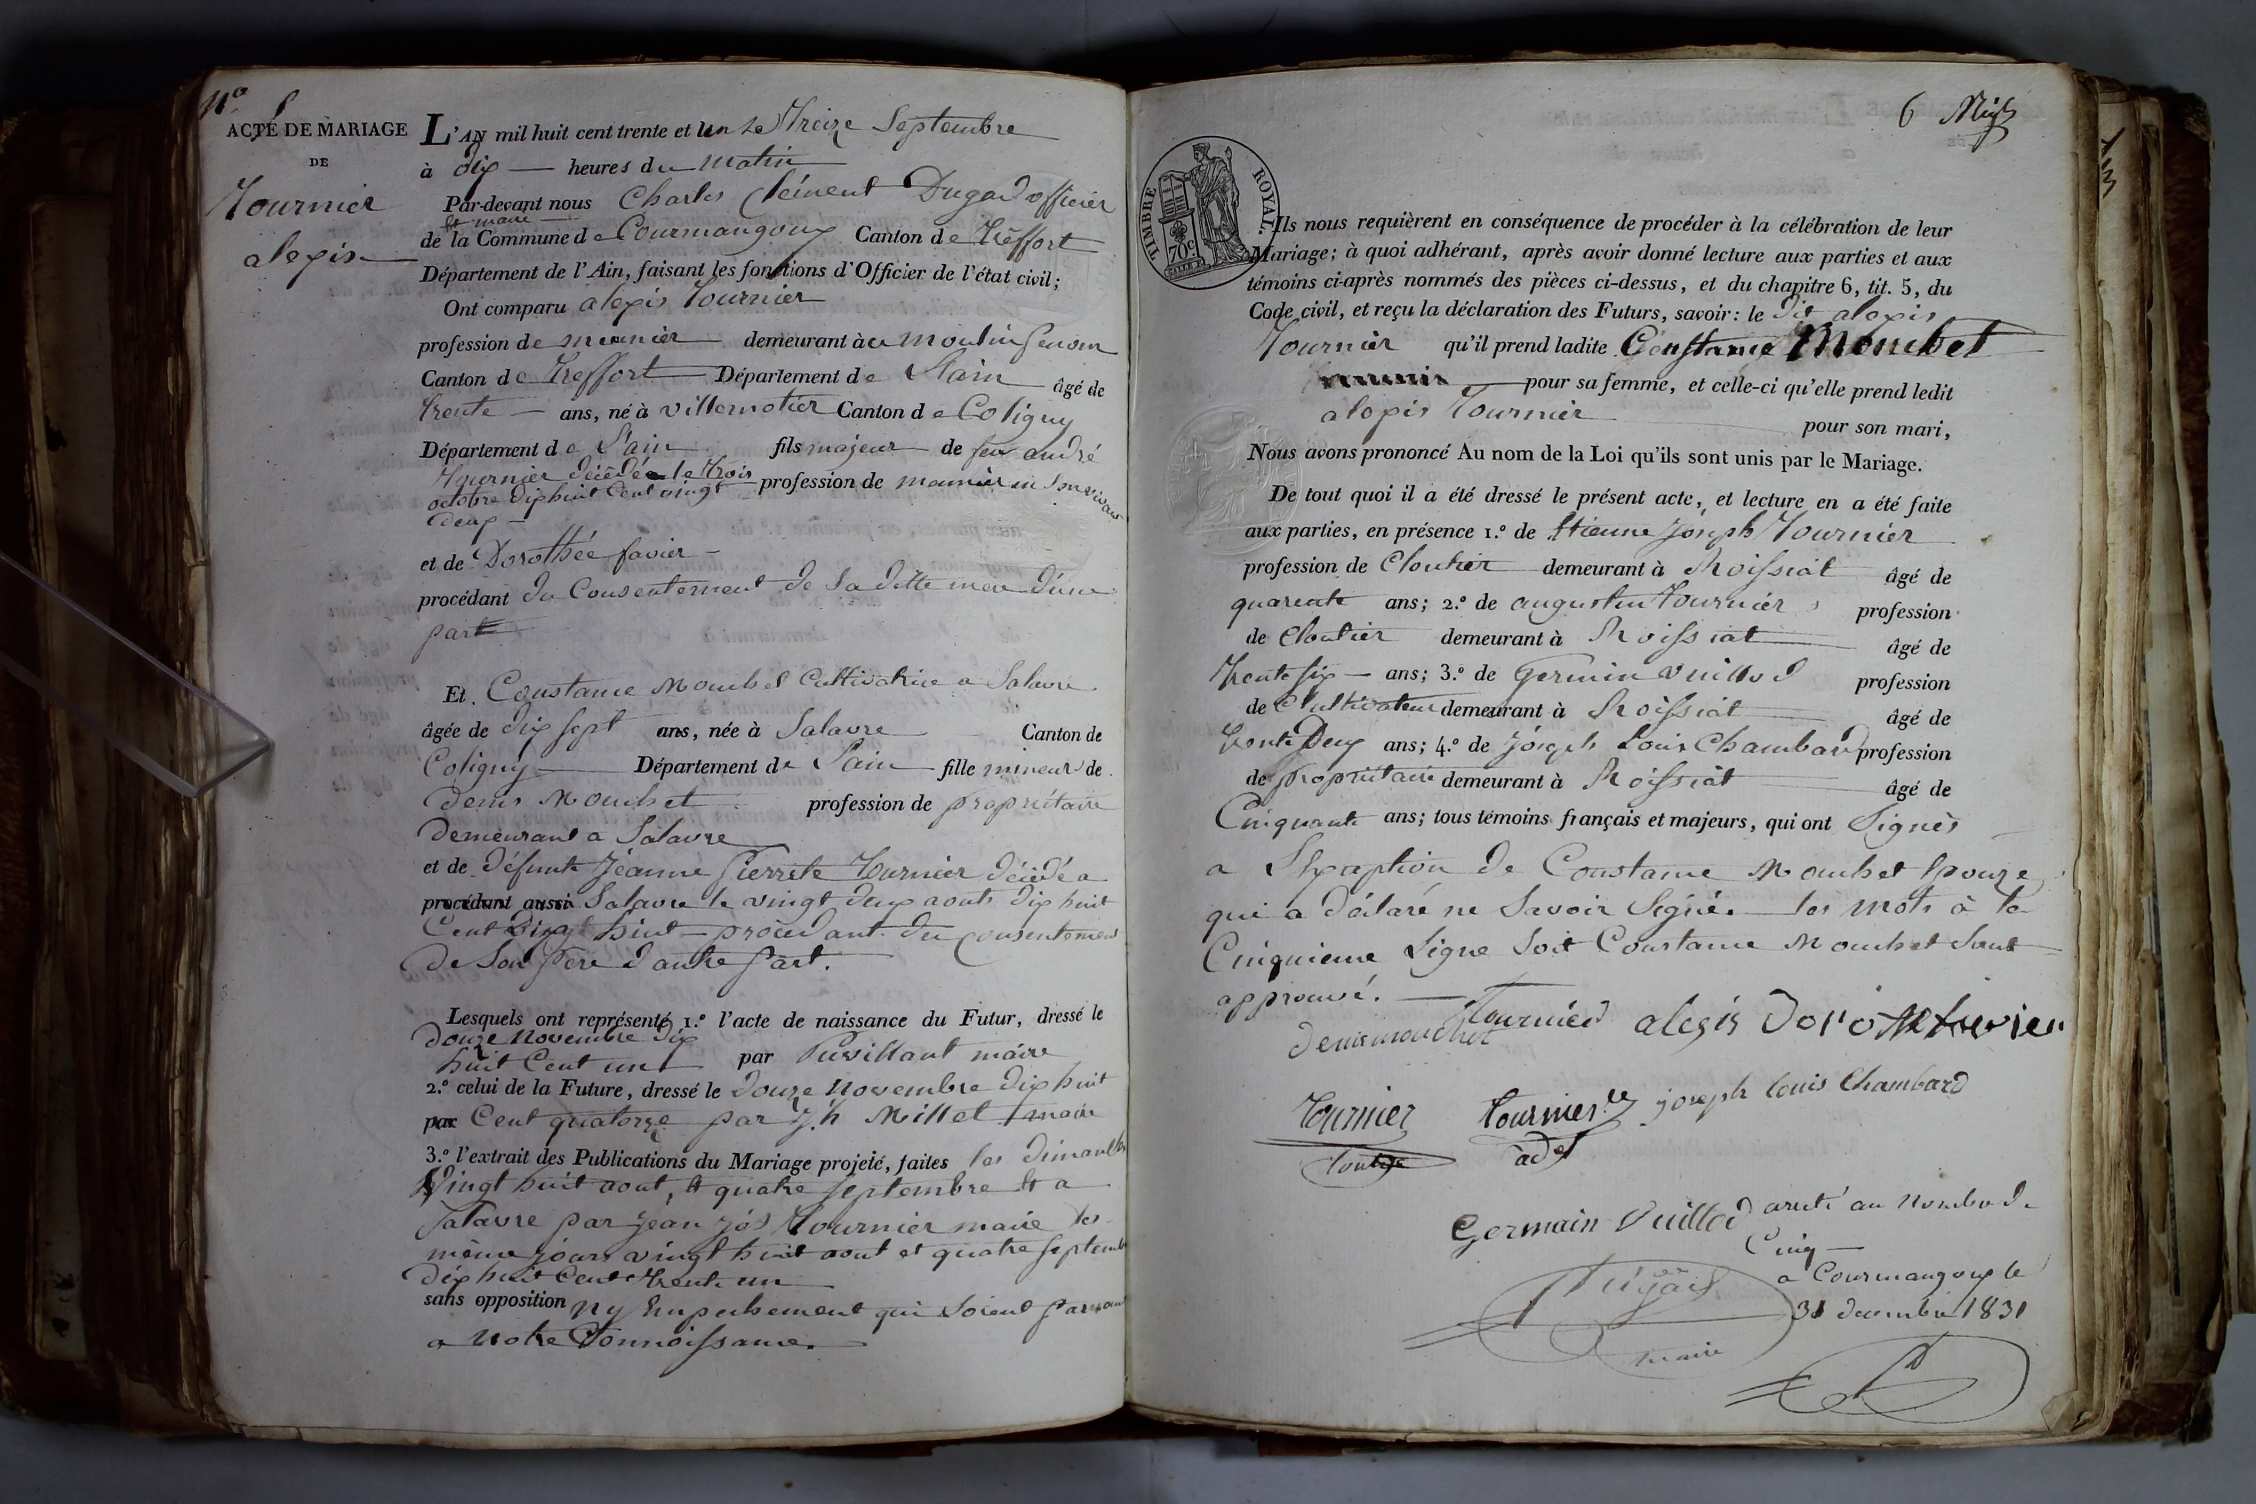 N° 5
ACTE DE MARIAGE
DE
Tournier
alexis
L'AN mil huit cent trente et un le Treize Septembre
à dix heures du matin
Par-devant nous Charles Clément Dugad officier
le maire
de la Commune de Courmangoux Canton de Treffort
Département de l'Ain, faisant les fonctions d'Officier de l'état civil;
Ont comparu alexis Tournier
profession de meunier demeurant à au moulin
Canton de Treffort Département de L'ain âgé de
trente ans, né à villemotier Canton de Coligny
Département de L'ain fils majeur de feu andré
Tournier décédée le trois
octobre dix huit Cent vingt profession de meunier en Son vivant
deux
et de Dorothée favier
procédant du Consentement de Sa ditte mere d'une
part
Et Constance Mouchet Cultivatrice a Salavre
âgée de dix sept ans, née à Salavre Canton de
Coligny Département de L'ain fille mineur de
denis Mouchet profession de propriétaire
demeurant a Salavre
et de défunte Jéanne Pierrete Tournier décédé a
procédant aussi Salavre le vingt deux aout dix huit
Cent vingt huit procedant du Consentement
de Son Pere d'autre Part.
Lesquels ont représenté 1.° l'acte de naissance du Futur, dressé le
Douze Novembre dix
huit Cent un par Puvillant maire
2.° celui de la Future, dressé le Douze Novembre dix huit
par Cent quatorze par J.h Millet maire
3.° l'extrait des Publications du Mariage projeté, faites les dimanches
Vingt huit aout, et quatre Septembre et a
Salavre par Jean Jos Tournier maire les
même jours vingt huit aout et quatre Septembre
dix huit Cent trente un
sans opposition ny Empechement qui Soient Parvenu
a Notre Connoissance.
6 Mij
TIMBRE ROYAL.
70c
Ils nous requièrent en conséquence de procéder à la célébration de leur
Mariage; à quoi adhérant, après avoir donné lecture aux parties et aux
témoins ci-après nommés des pièces ci-dessus, et du chapitre 6, tit. 5, du
Code civil, et reçu la déclaration des Futurs, savoir: le dit alexis
Tournier qu'il prend ladite Constance Mouchet
pour sa femme, et celle-ci qu'elle prend ledit
alexis Tournier pour son mari,
Nous avons prononcé Au nom de la Loi qu'ils sont unis par le Mariage.
De tout quoi il a été dressé le présent acte, et lecture en a été faite
aux parties, en présence 1.° de Etienne Joseph Tournier
profession de Cloutier demeurant à Roissiat âgé de
quarente ans; 2.° de augustin Tournier profession
de Cloutier demeurant à Roissiat âgé de
Trente six ans; 3.° de Germin Vuillod profession
de Cultivateur demeurant à Roissiat âgé de
trente Deux ans; 4.° de Joseph Louis Chambard profession
de propriétaire demeurant à Roissiat âgé de
Cinquante ans; tous témoins français et majeurs, qui ont Signés
a L'Exception de Constance Mouchet Epouze
qui a déclaré ne Savoir Signé. les mots à la
Cinquieme Ligne Soit Constance Mouchet Sont
approuvé.
denis mouchet Tournier alexis Dorothé favier
Tournier Tournier joseph louis Chambard
Germain Vuillod arrêté au nombre de
Cinq
a Courmangoux le
Dugad 31 decembre 1831
maire